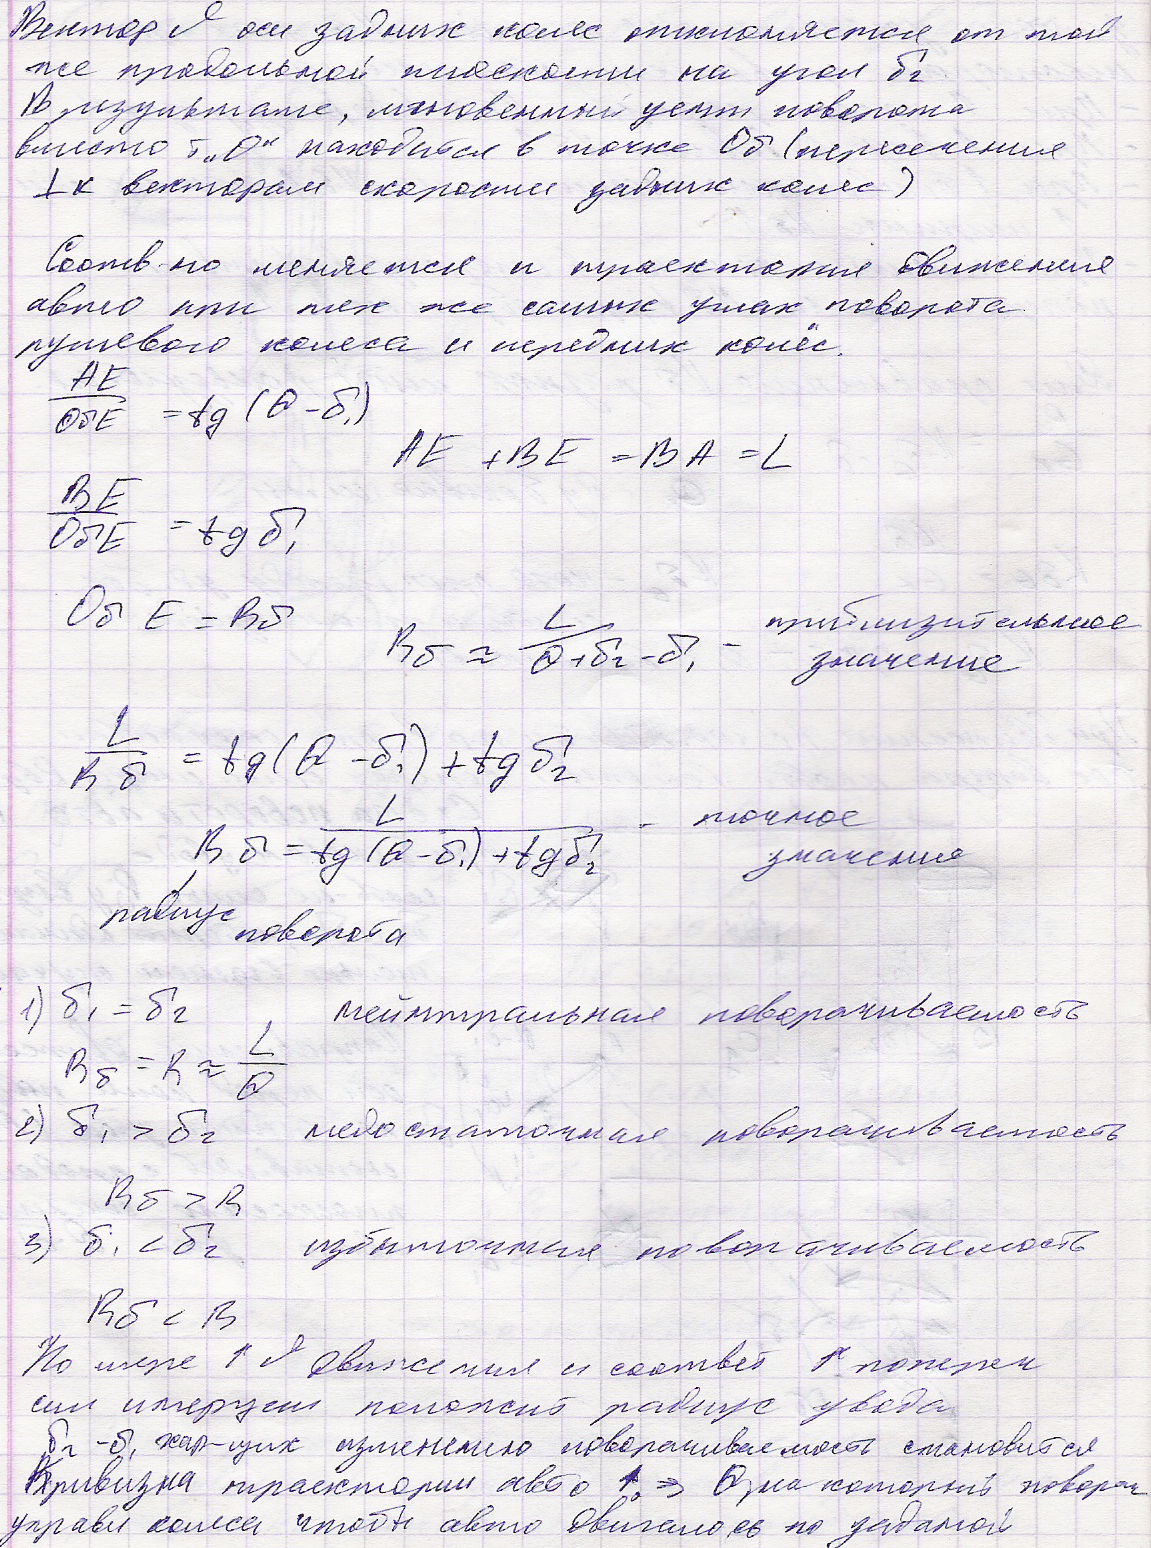 Вектор V оси задних колес отклоняется от той
же продольной плоскости на угол δ2
В результате, мгновенный центр поворота
вместо т„О" находится в точке Oδ (пересечения
⊥ к векторам скорости задних колес)
Соотв-но меняется и траектория движения
авто при тех же самых углах поворота
рулевого колеса и передних колёс.
AE/OδE = tg(Θ - δ1)
AE + BE = BA = L
BE/OδE = tg δ1
Oδ E = Rδ
Rδ ≈ L/(Θ + δ2 - δ1) - приблизительное
значение
L/Rδ = tg(Θ - δ1) + tg δ2
Rδ = L/(tg(Θ - δ1) + tg δ2) - точное
значение
радиус
поворота
1) δ1 = δ2 нейнтральная поворачиваемость
Rδ = R ≈ L/Θ
2) δ1 > δ2 недостаточная поворачиваемость
Rδ > R
3) δ1 < δ2 избыточная поворачиваемость
Rδ < R
По мере ↑ V движения и соответ ↑ попереч
сил инерции радиус увода
δ2 - δ1 хар-щих изменению поворачиваемость становится
Кривизна траектории авто ↑ => Θ, на который поворач
управл колеса чтобы авто двигалось по заданой